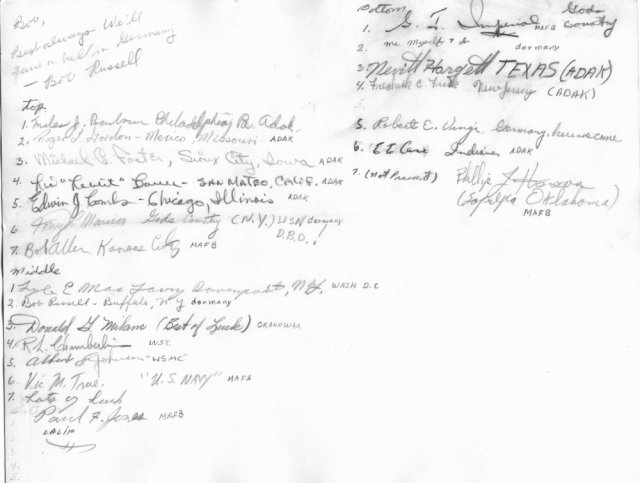 Bob,
Best always. We'll
have a ball in Germany
— Bob Russell
Top
1. Miles J. Philadelphia Pa. Adak.
2. Roger L. Gordon - Mexico, Missouri ADAK
3. Michael C. Foster, Sioux City, Iowa ADAK
4. Ric "Rabbit" - SAN MATEO, CALIF. ADAK
5. Edwin J Combs - Chicago, Illinois ADAK
6. Tony Gods Country (N.Y.) USN Germany
D.B.D.!
7. Bob Allen Kansas City MAFB
Middle
1. Lyle E Mac Davenport, N.Y. WASH D.C
2. Bob Russell - Buffalo, N.Y Germany
3. Donald G Milam (Best of Luck) OKANOWAA
4. R.L. Chamberlin WST.
5. Albert Johnson "WSMC"
6. Vic M. True. "U.S. NAVY" MAFB
7. Lots of Luck
Paul F. Jones MAFB
CALIF
4.
5.
Bottom
1. G. I. Imperial MAFB Gods Country
2. me myself & I Germany
3. Nevitt Hargett TEXAS (ADAK)
4. Fredrick C. New Jersey (ADAK)
5.
5. Robert E. Germany, here we come
6. E E Case Indiana ADAK
7. (Not Present) Phillip L.
(Sapulpa Oklahoma)
MAFB